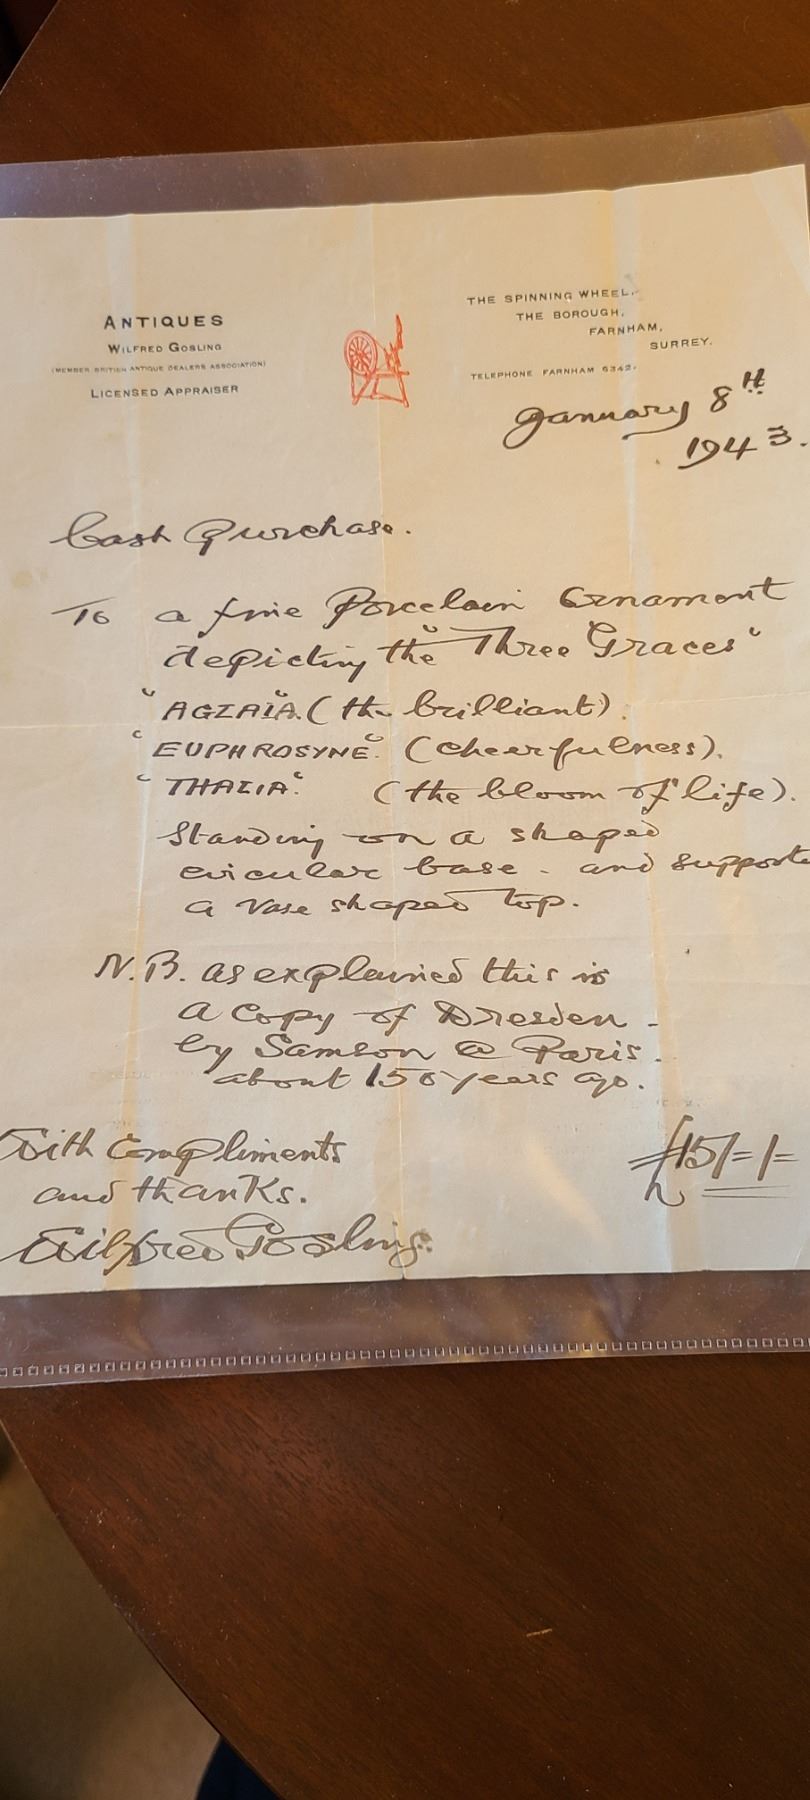 ANTIQUES
WILFRED GOSLING
(MEMBER BRITISH ANTIQUE DEALERS ASSOCIATION)
LICENSED APPRAISER
THE SPINNING WHEEL,
THE BOROUGH,
FARNHAM,
SURREY.
TELEPHONE FARNHAM 6342.
January 8TH
1943.
Cash Purchase.
To a fine Porcelain Ornament
depicting the "Three Graces"
"AGLAIA" (the brilliant).
"EUPHROSYNE" (cheerfulness).
"THALIA" (the bloom of life).
Standing on a shaped
circular base - and supporte
a vase shaped top.
N.B. as explained this is
a copy of Dresden -
by Samson @ Paris.
about 150 years ago.
With compliments
and thanks.
Wilfred Gosling.
£15/=/=